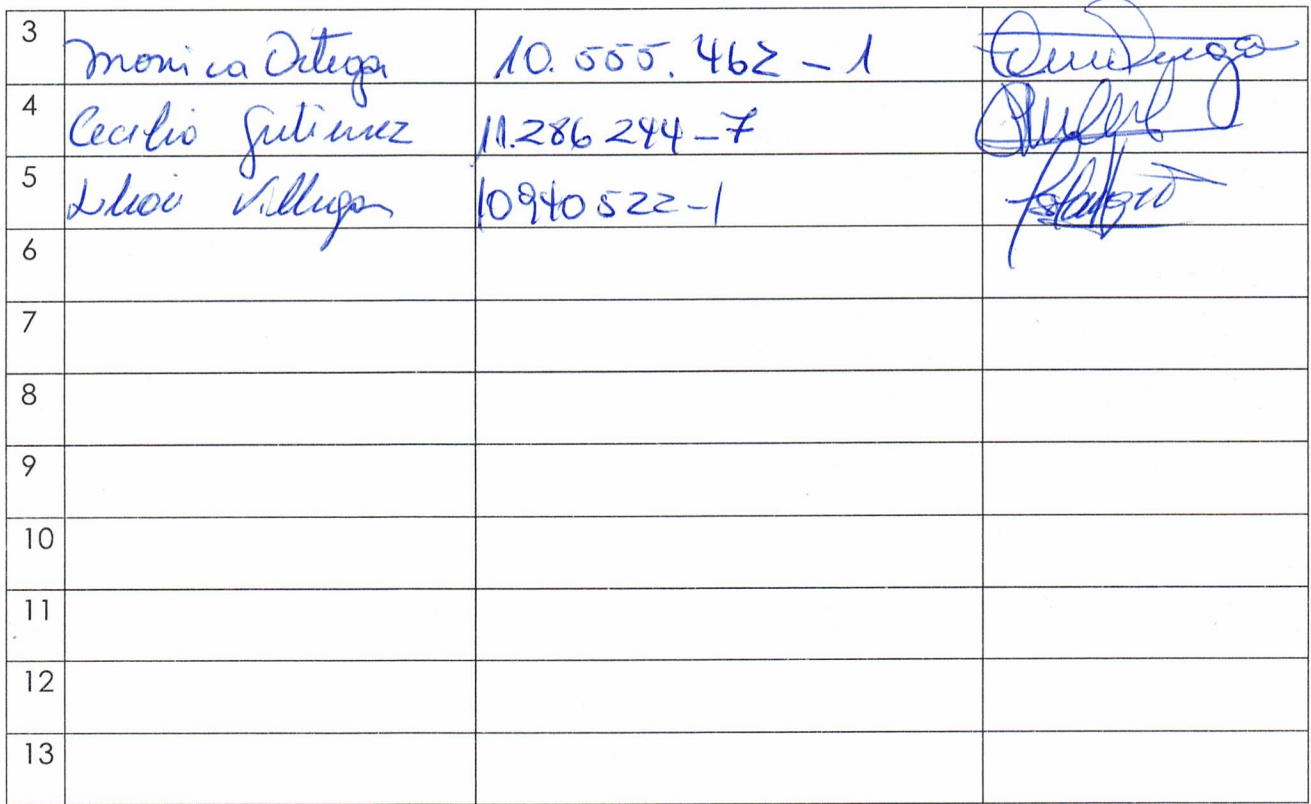 3 Monica Ortega 10.555.462-1
4 Cecilia Gutierrez 11.286 244-7
5 10940522-1
6
7
8
9
10
11
12
13